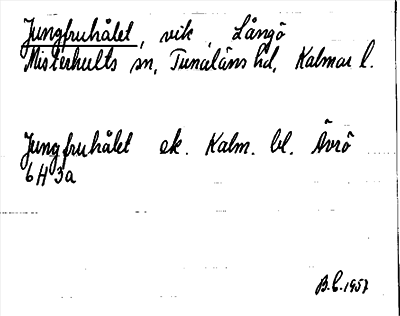 Jungfruhålet, vik, Långö
Misterhults sn, Tunaläns hd, Kalmar l.
Jungfruhålet ek. Kalm. bl. Ävrö
6H 3a
B.C. 1957